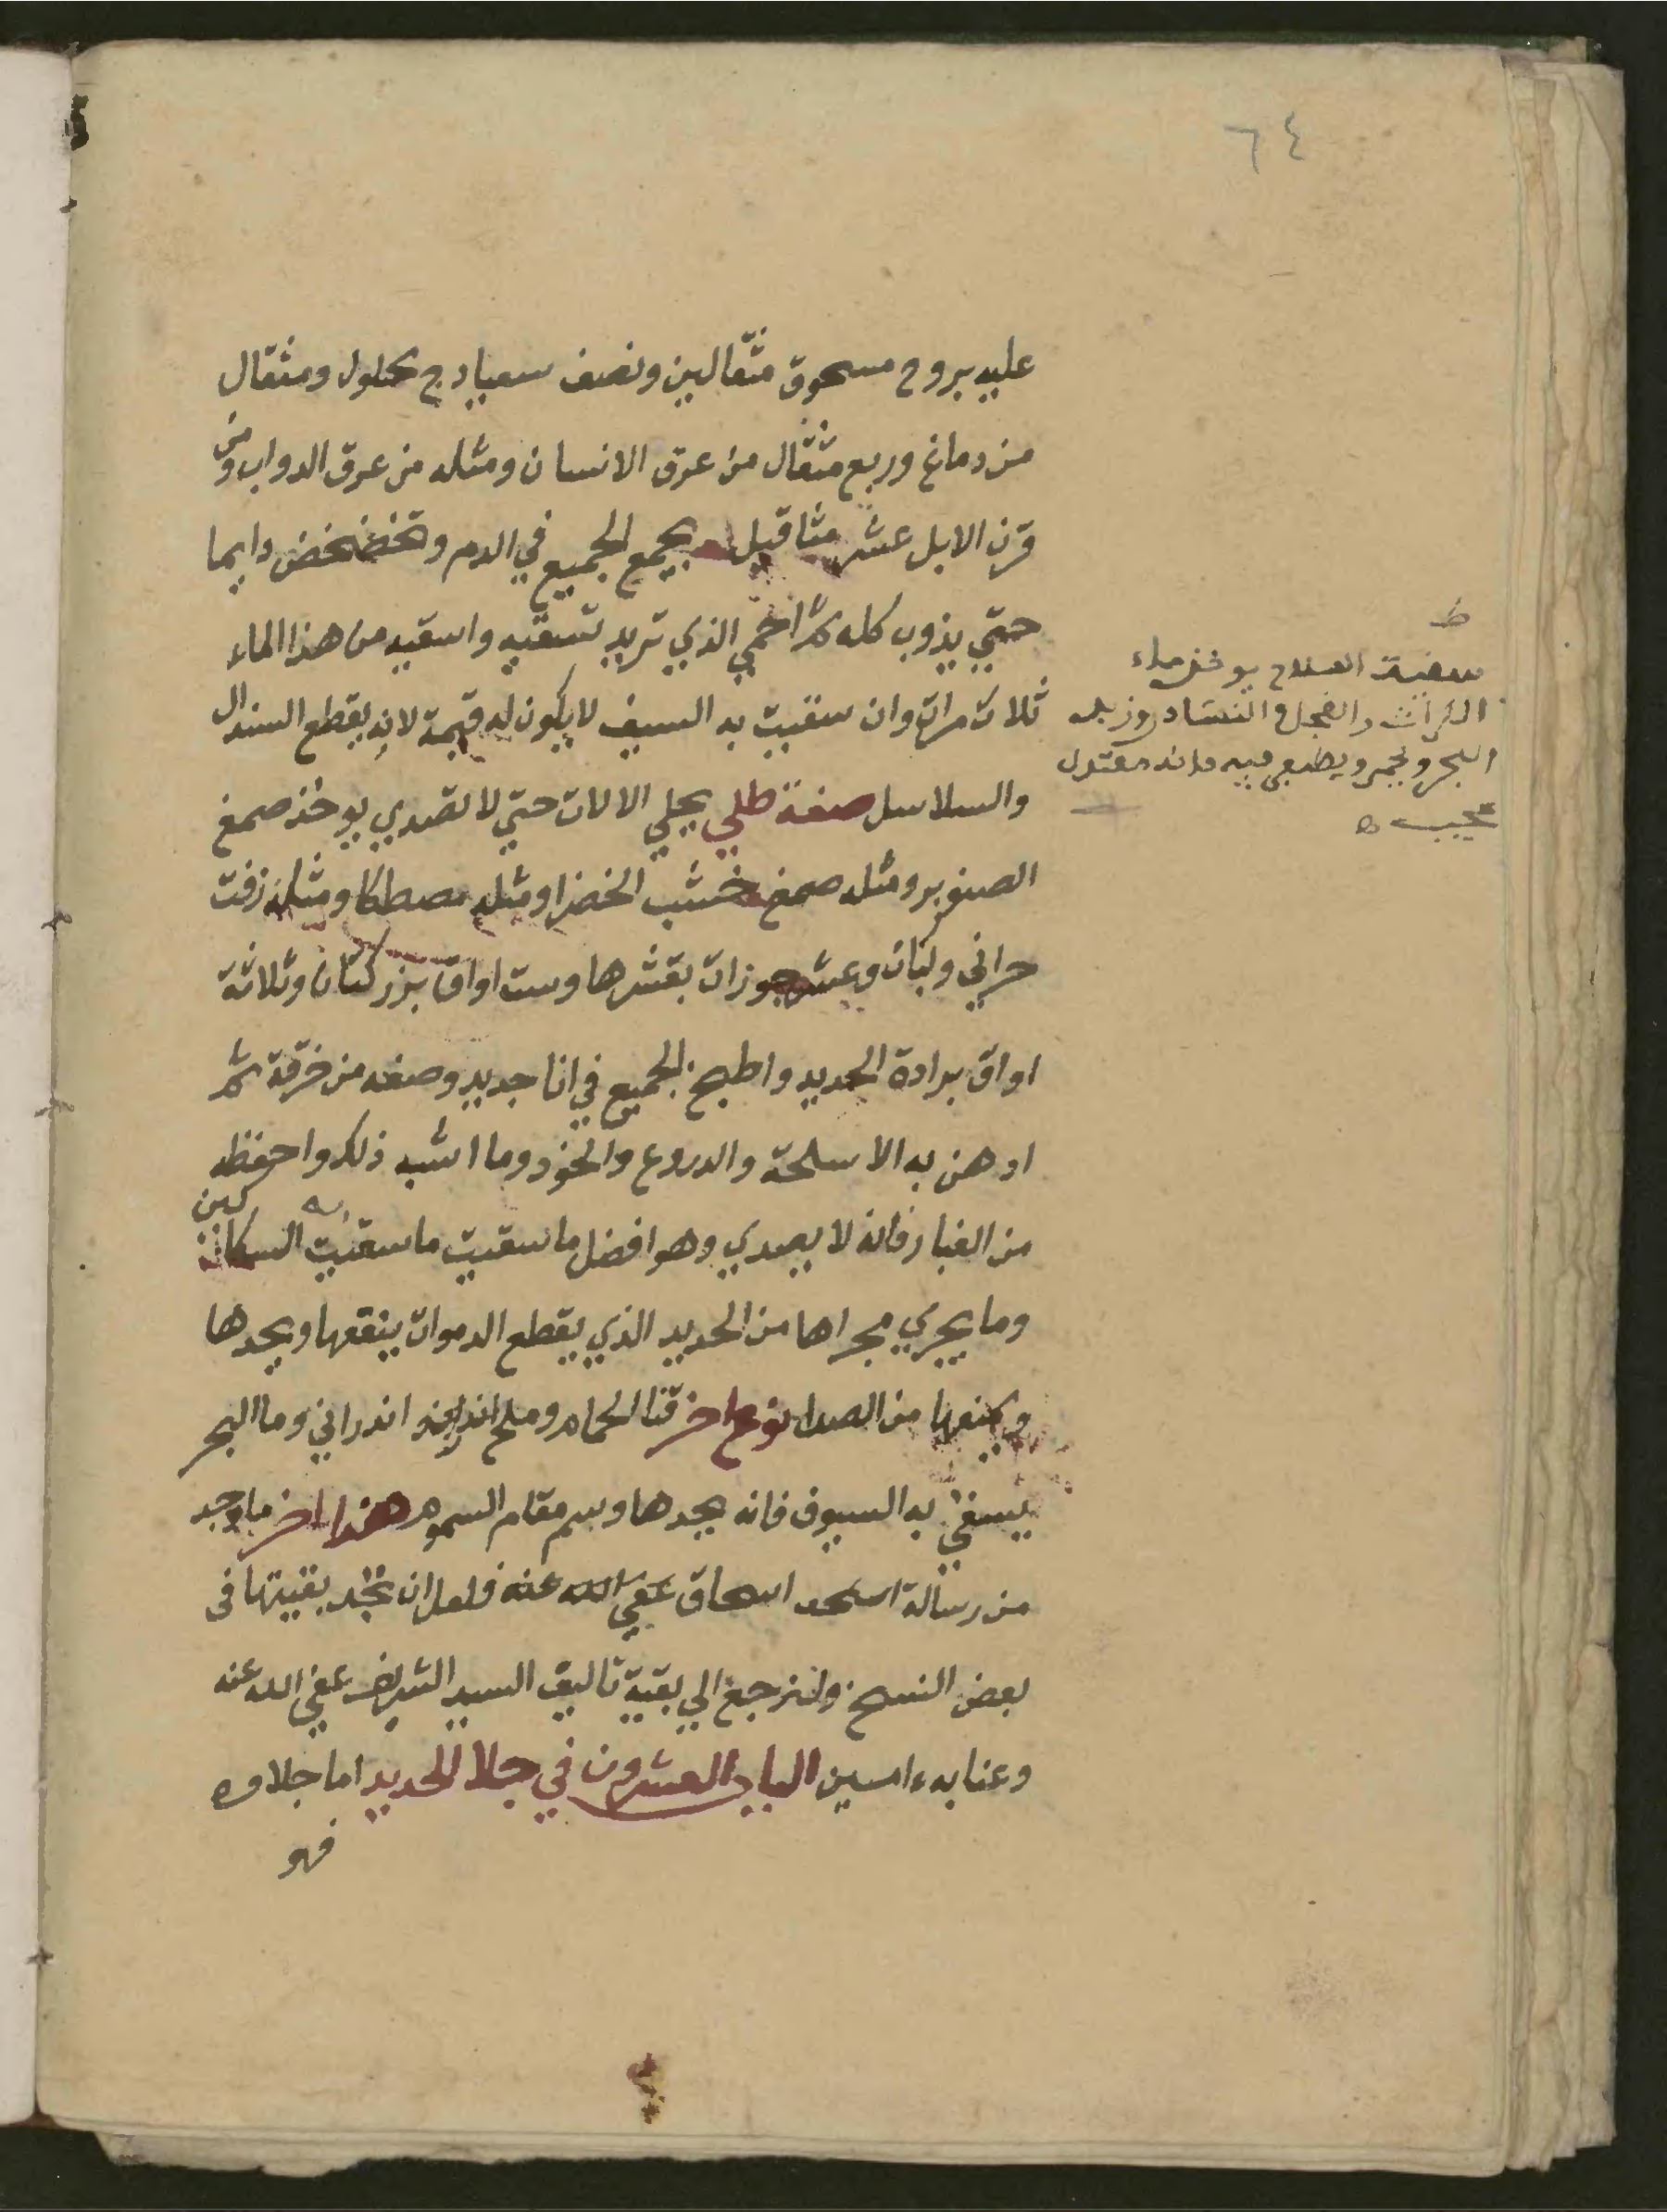 ٦٤
عليه يبروح مسحوق مثقالين ونصف سعبادج محلول ومثقال
من دماغ وربع مثقال من عرق الانسان ومثله من عرق الدواب ومن
قرن الابل عشر مثاقيل يجمع الجميع في الدم وتخضخض دايما
حتي يذوب كله ثم احمي الذي تريد تسقيه واسقيه من هذا الماء
ثلاث مرات وان سقيت به السيف لا يكون له قيمة لانه يقطع السندال
والسلاسل صفة طلي يجلي الالات حتي لا تصدي يوخذ صمغ
الصنوبر ومثله صمغ خشب الخضرا ومثله مصطكا ومثله زفت
حراني ولبان وعشر جوزات بقشرها وست اواق بزر كتان وثلاثة
اواق برادة الحديد واطبخ الجميع في انا جديد وصفه من خرقة ثم
ادهن به الاسلحة والدروع والخوذ وما اشبه ذلك واحفظه
من الغبار فانه لا يصدي وهو افضل ما سقيت ما سقيت به السكاكين
وما يجري مجراها من الحديد الذي يقطع الدموات ينفعها ويحدها
ويمنعها من الصدا نوع اخر قثا الحمار وملح اندراني وما البحر
يسقي به السيوف فانه يحدها ويسم مقام السموم هذا اخر ما وجد
من رسالة اسحاق عفي الله عنه فلعل ان تجد بقيتها في
بعض النسخ ولنرجع الي بقية تاليف السيد الشريف عفي الله عنه
وعنا به امين الباب العشرون في جلا الحديد اما جلاوه
فهو
ط
سقية السلاح يوخذ ماء
الكراث والفجل والنشادر وزبد
البحر ويخمر ويطفي فيه فانه
عجيب